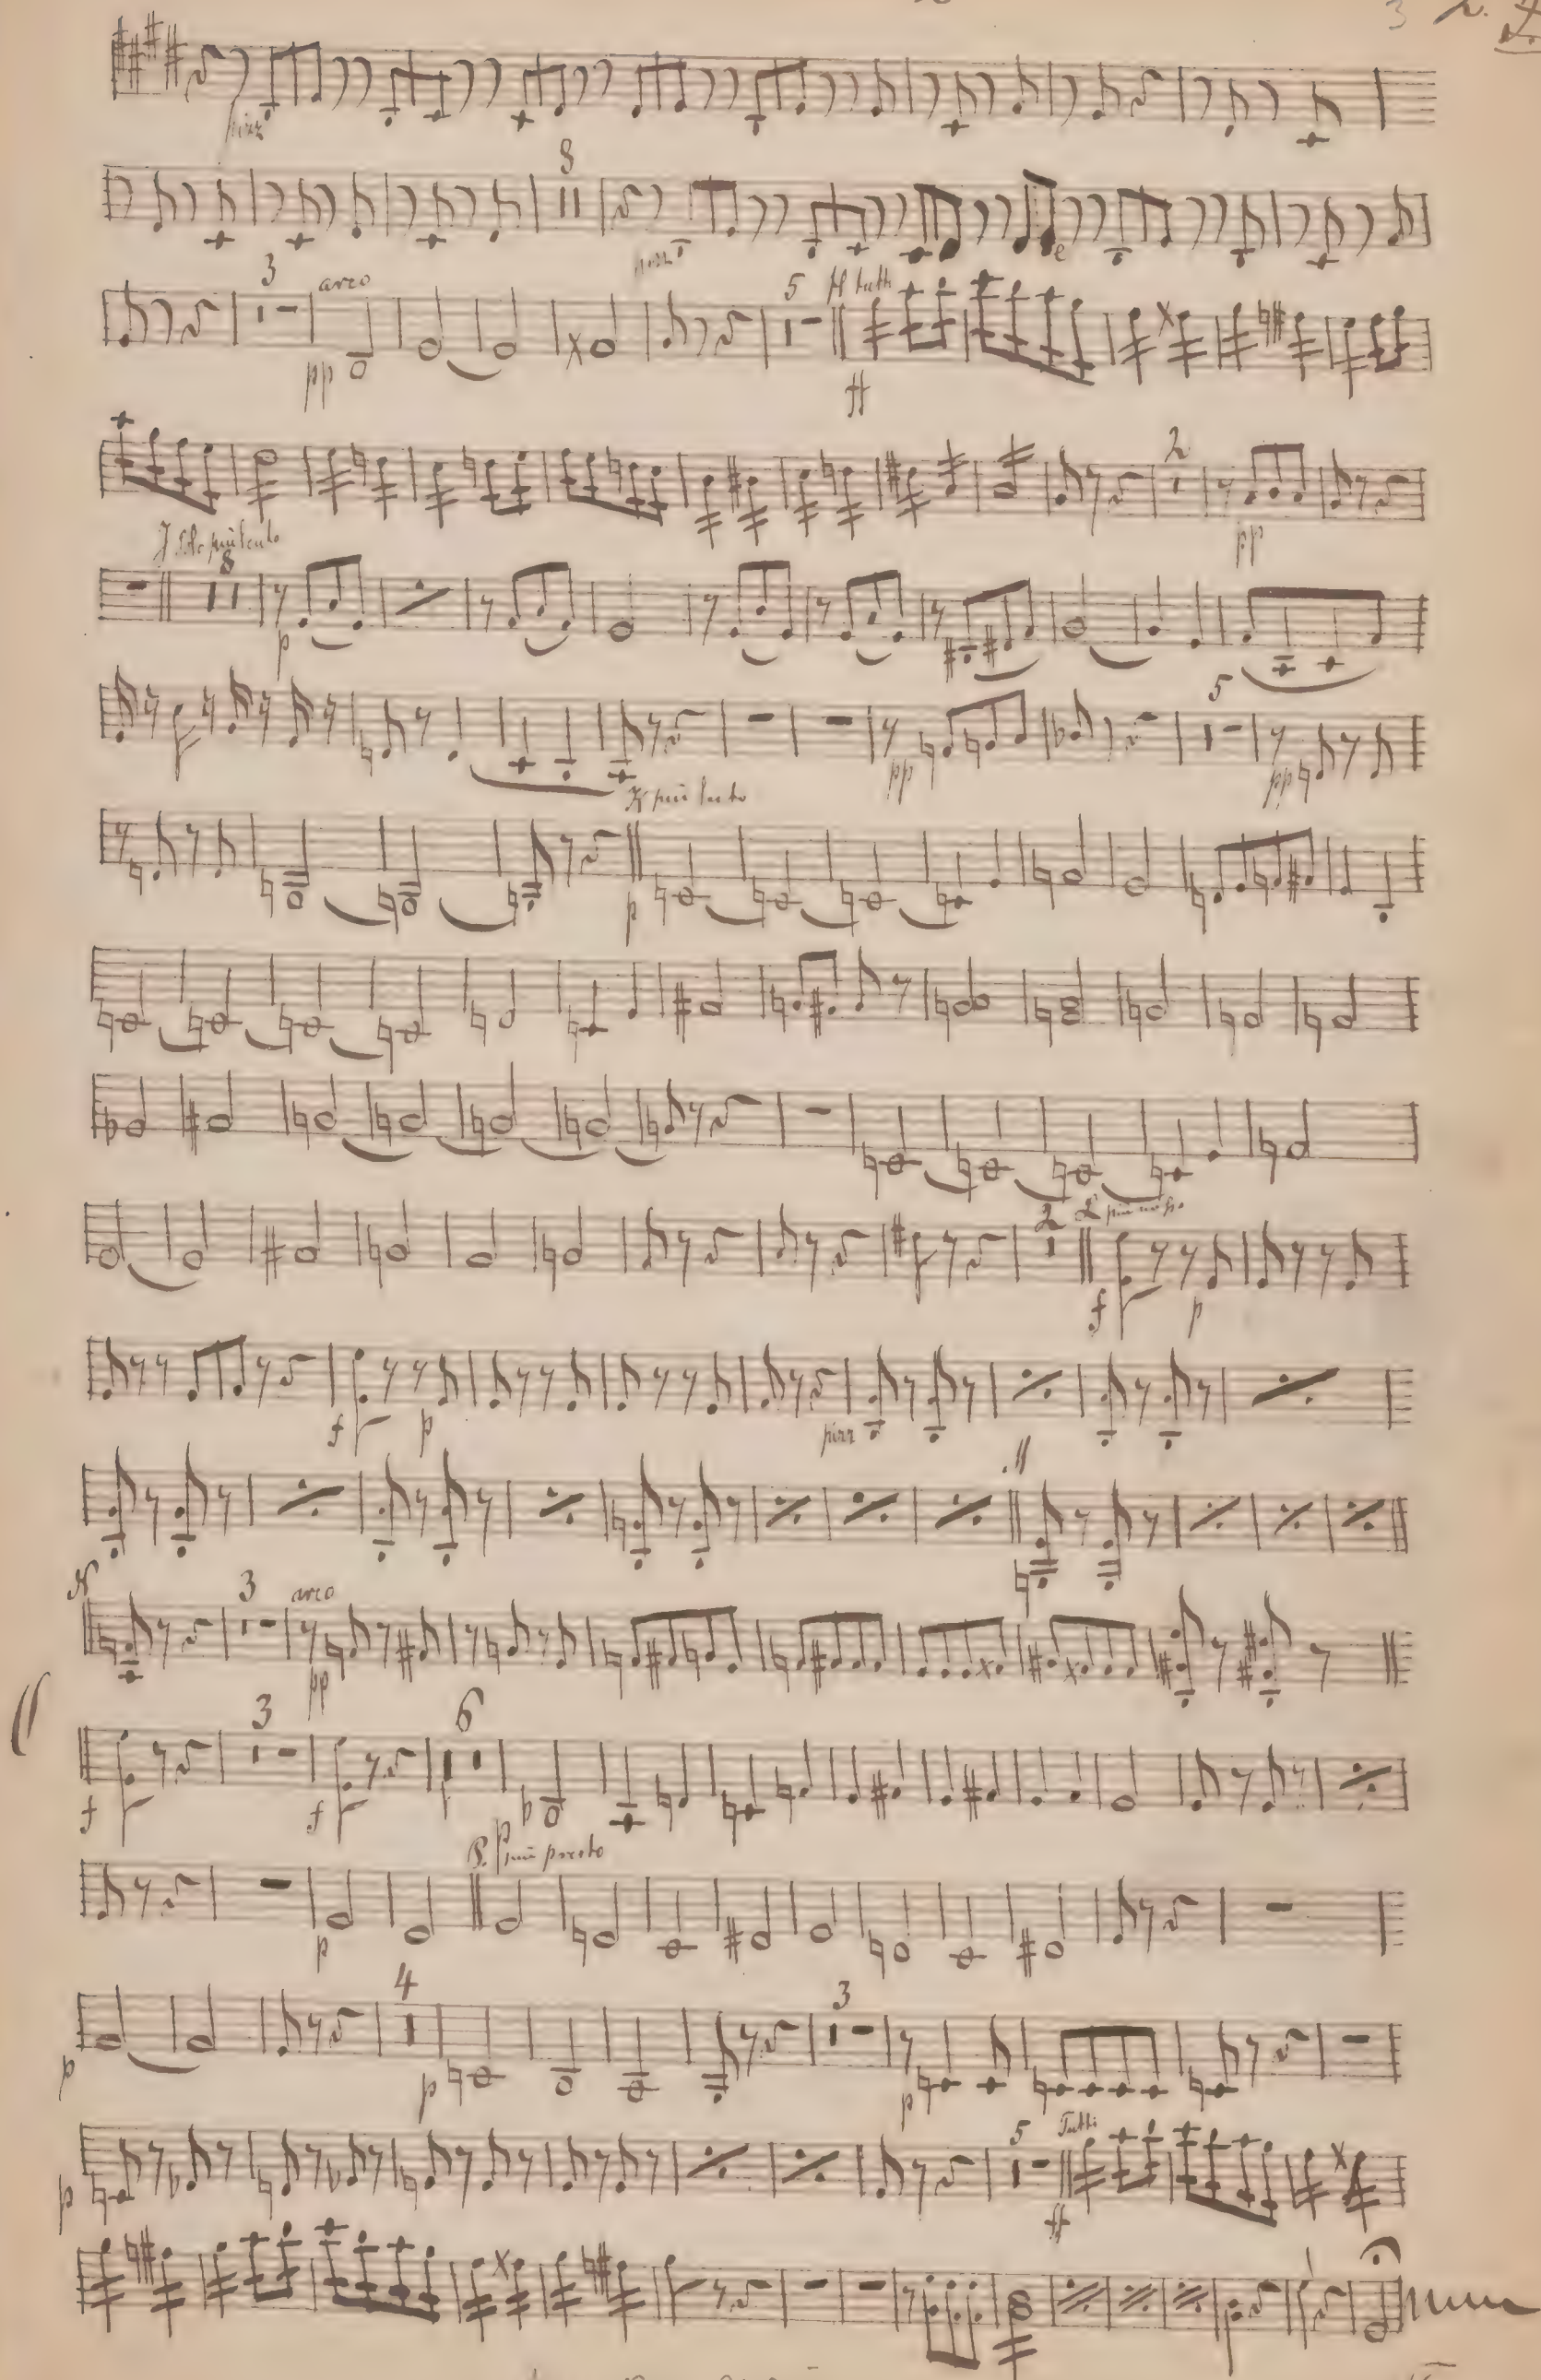 3
pizz
8
pizz
3 arco 5 H tutti
pp ff
2
pp
J Solo più lento
8
p
5
pp pp
K più lento
p
2 L più mosso
f p
f p pizz
M
N 3 arco
pp
3 6
f f
P. più presto
p
4 3
p p p
5 Tutti
p ff